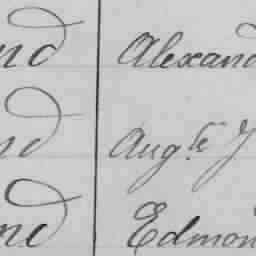 nd Alexand
nd Augte J
nd Edmon